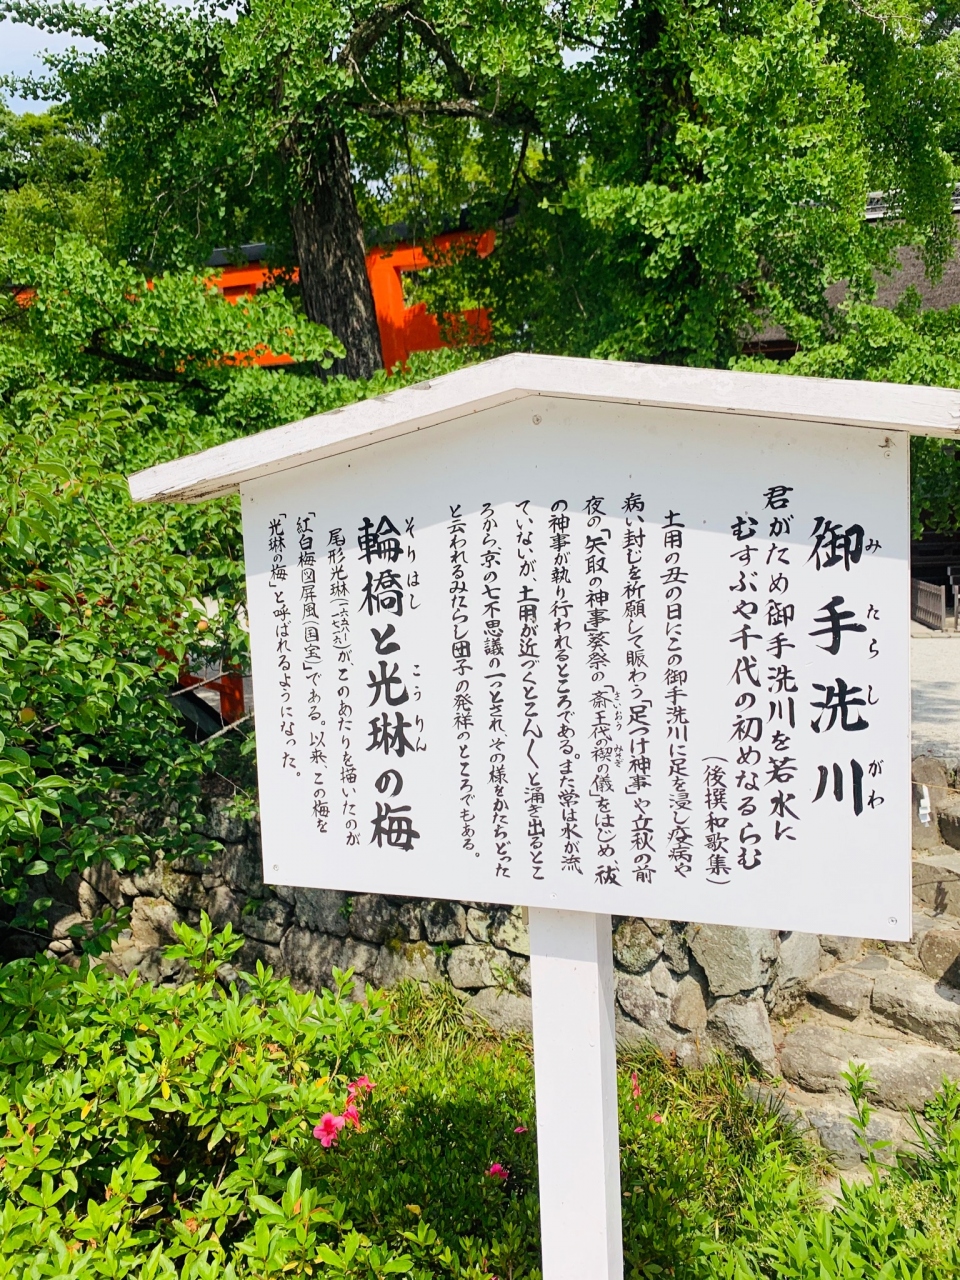 御手洗川
みたらしがわ
君がため御手洗川を若水に
むすぶや千代の初めなるらむ
(後撰和歌集)
土用の丑の日にこの御手洗川に足を浸し疫病や
病い封じを祈願して賑わう「足つけ神事」や立秋の前
夜の「矢取の神事」葵祭の「斎王代の禊の儀」をはじめ、祓
さいおう
みそぎ
の神事が執り行われるところである。また常は水が流
れていないが、土用が近づくとこんくと涌き出るとこ
ろから京の七不思議の一つとされ、その様をかたちどった
と云われるみたらし団子の発祥のところでもある。
輪橋と光琳の梅
そりはし
こうりん
尾形光琳(一六五八ー一七一六)が、このあたりを描いたのが
「紅白梅図屏風(国宝)」である。以来、この梅を
「光琳の梅」と呼ばれるようになった。